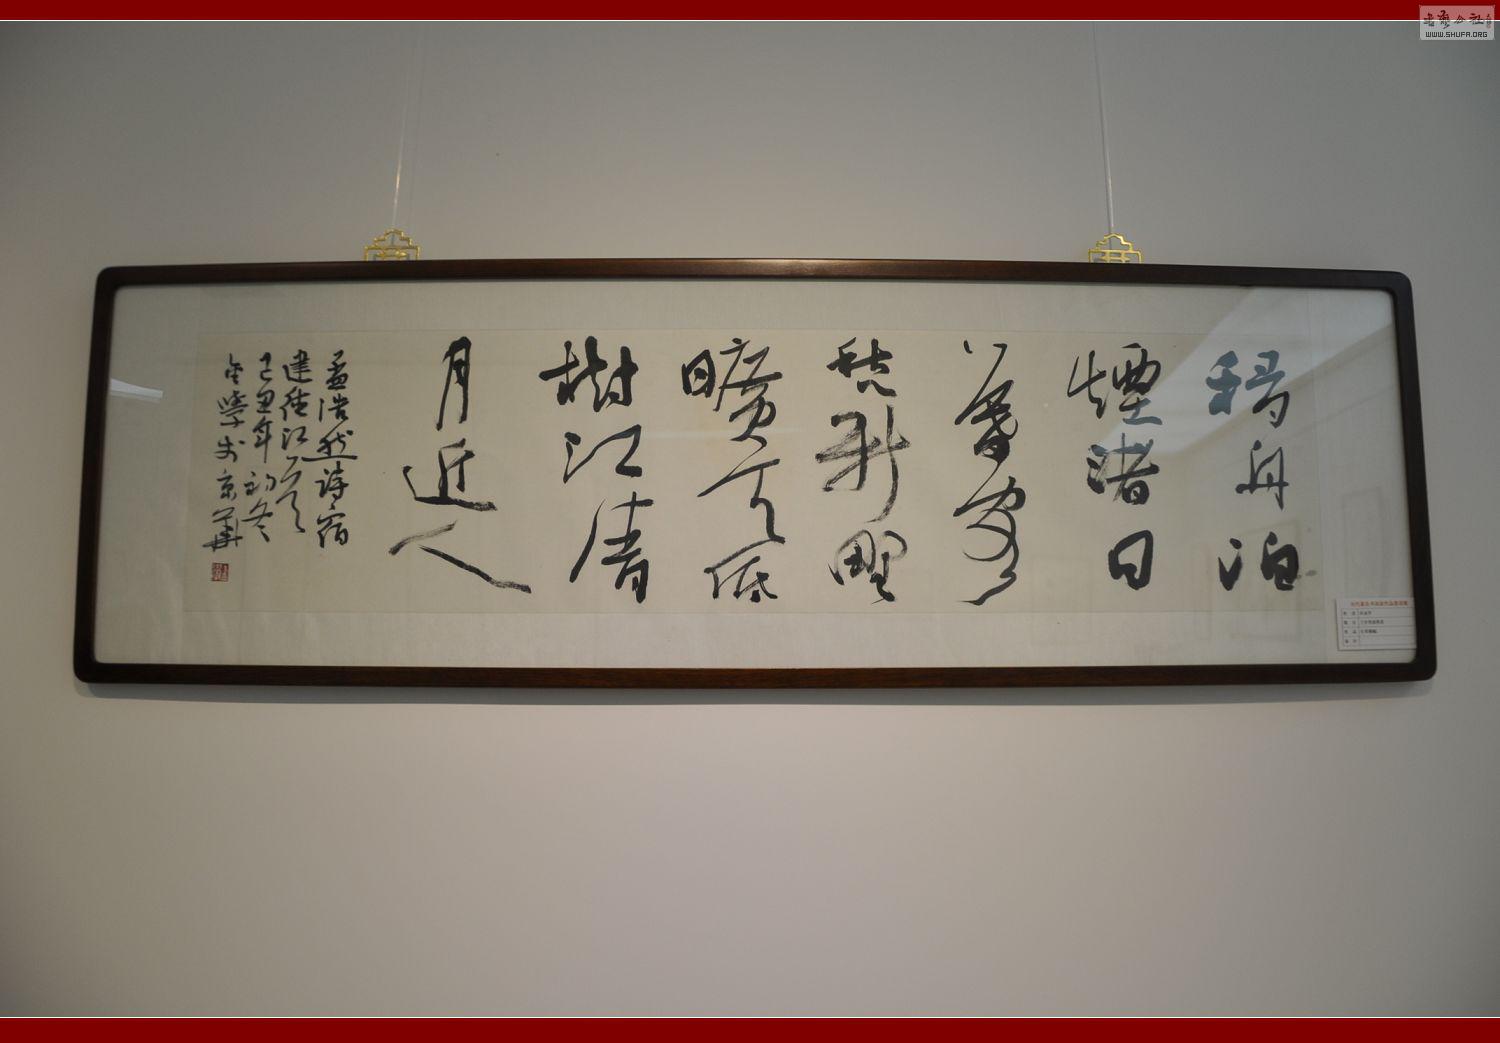 移舟泊
煙渚日
暮客
愁新野
曠天低
樹江清
月近人
孟浩然詩宿
建德江
己丑年初冬
京華
书艺公社
WWW.SHUFA.ORG